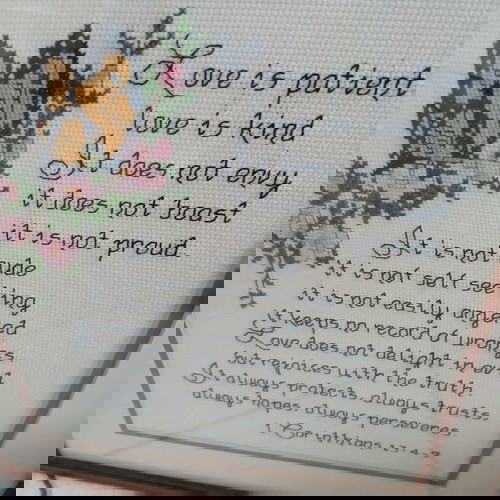 Love is patient
love is kind
It does not envy
it does not boast
it is not proud.
It is not rude
it is not self seeking
it is not easily angered
it keeps no record of wrongs
Love does not delight in evil
but rejoices with the truth.
It always protects, always trusts
always hopes, always perseveres.
1 Corinthians 13 4-7